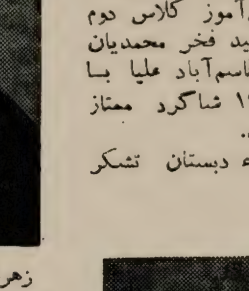 آموز کلاس دوم
ید فخر محمدیان
اسم‌آباد علیا بسا
شاگرد ممتاز
ء دبستان تشکر
زهر